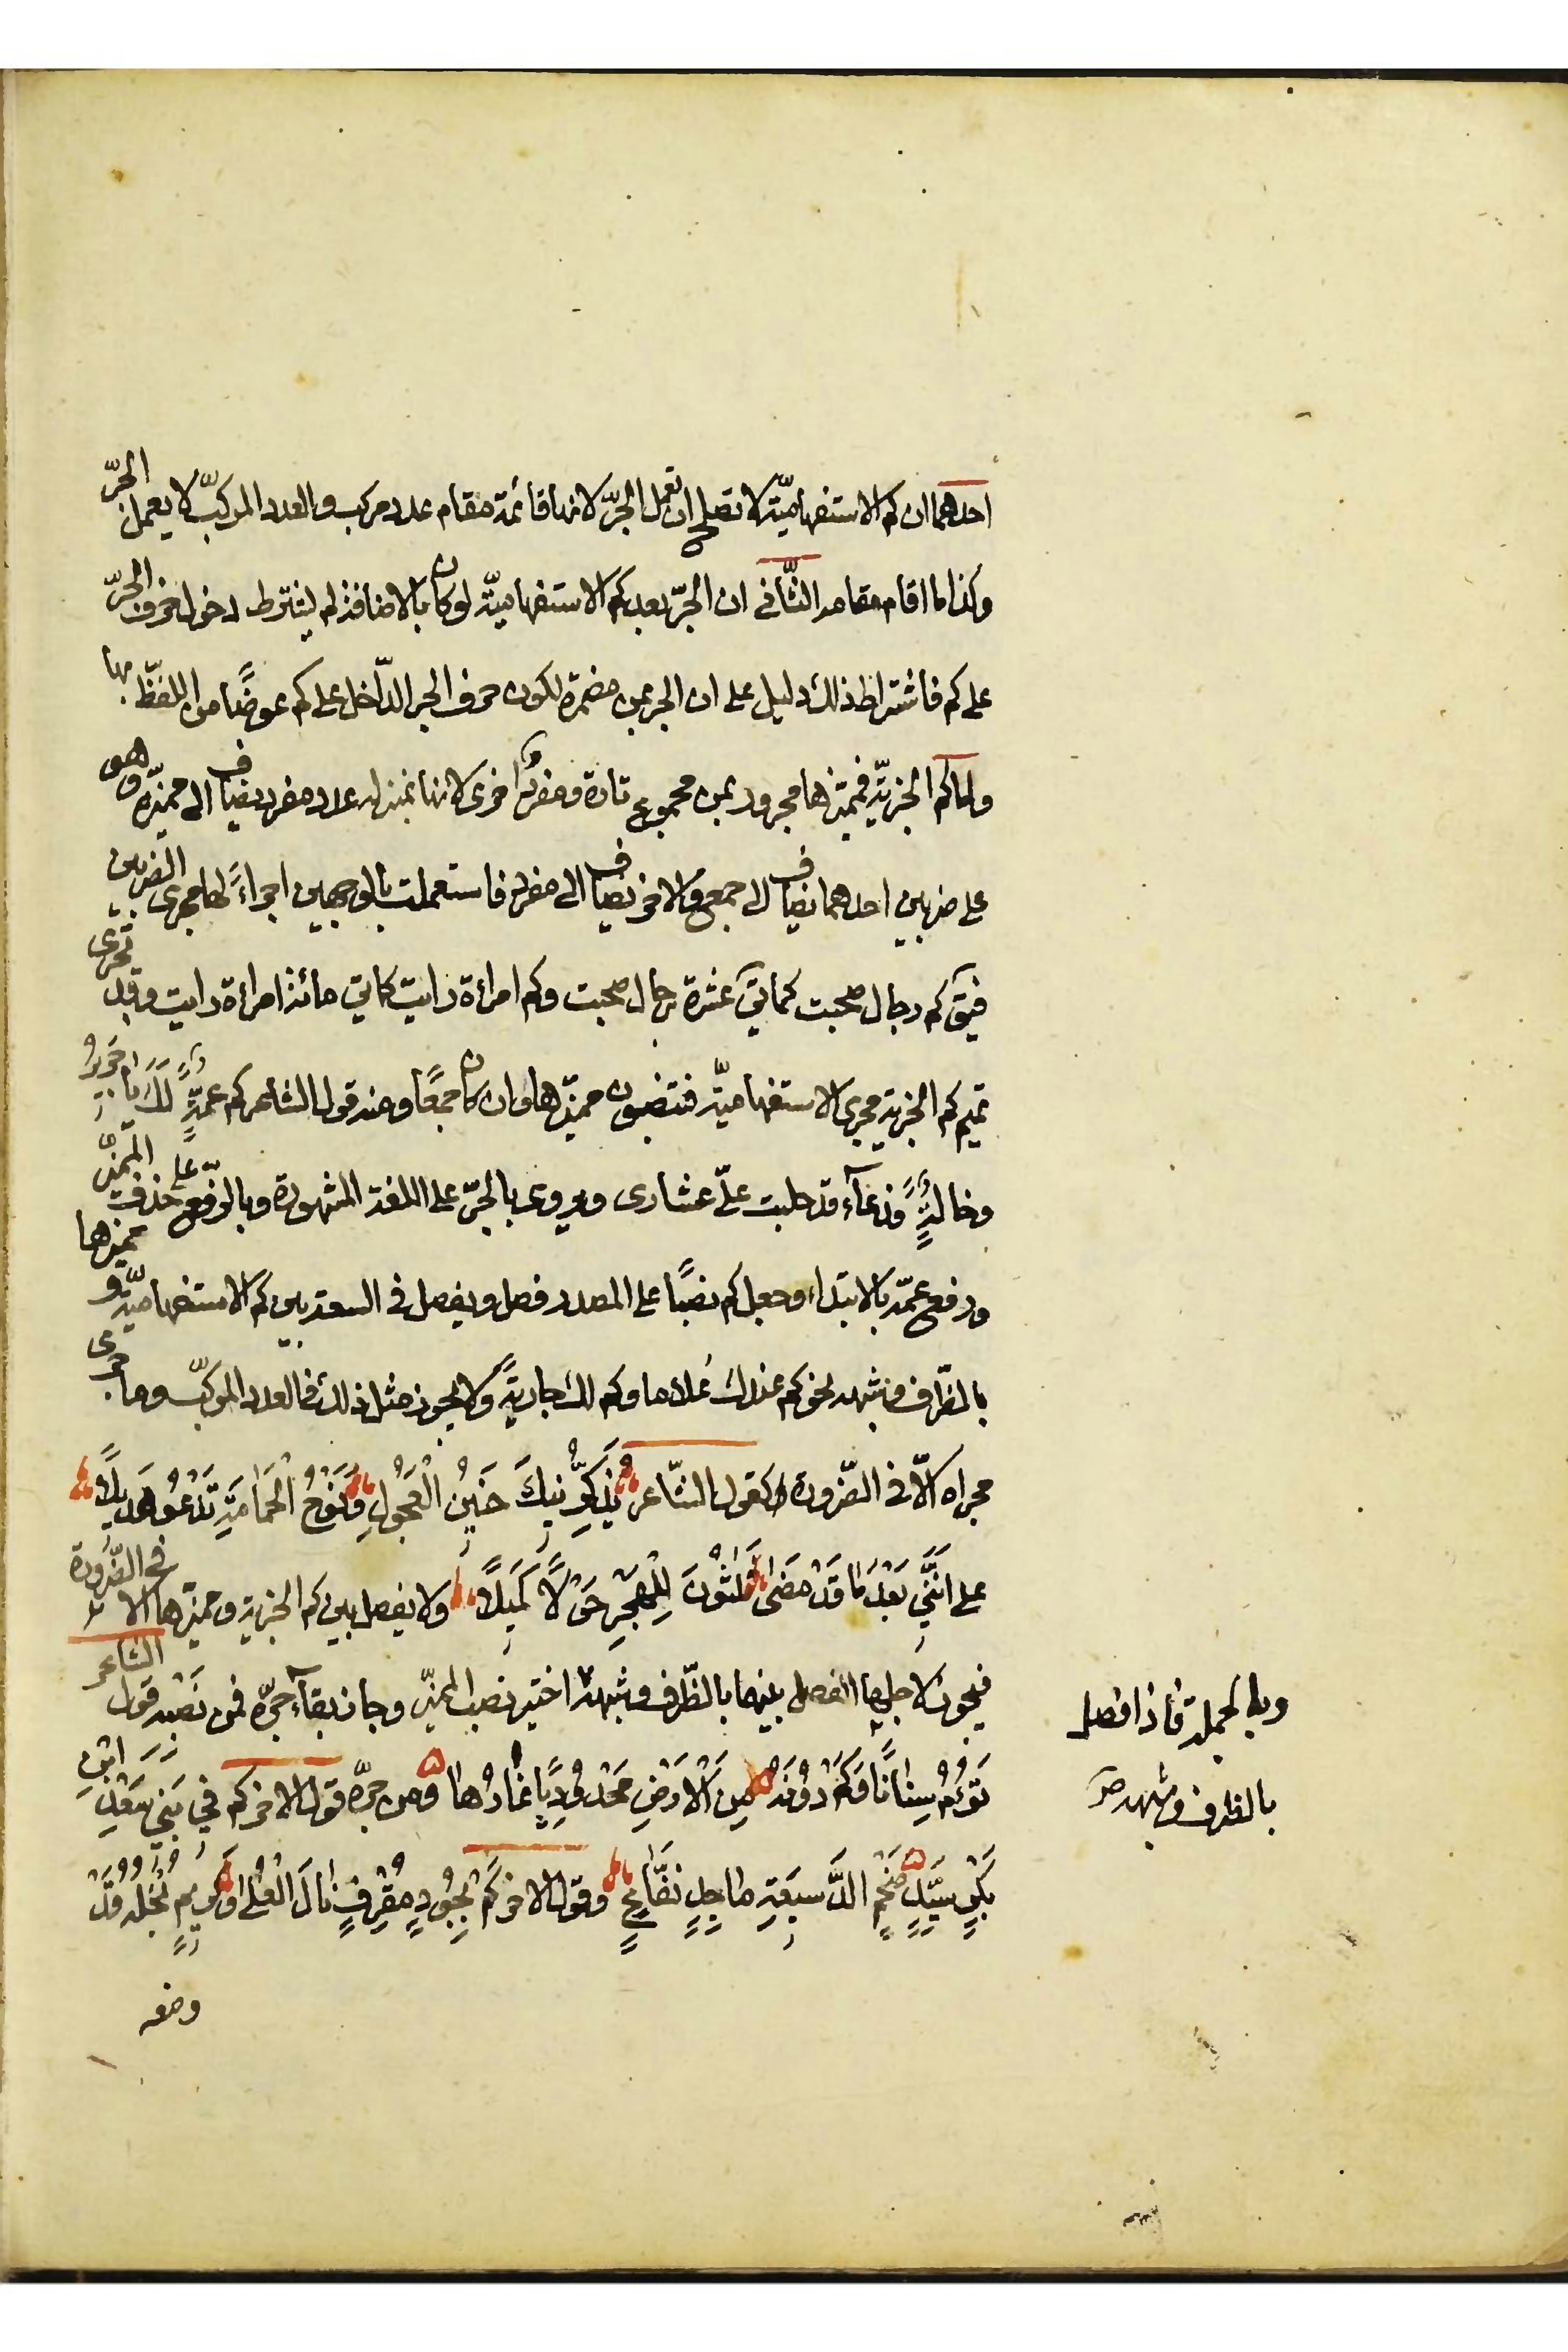 احدهما ان كم الاستفهاميّة لا تصلح ان تعمل الجرّ لانها قائمة مقام عدد مركب والعدد المركبّ لا يعمل الجرّ
وكذا ما اقام مقامه الثّاني ان الجرّ بعد كم الاستفهاميّة لو كان بالاضافة لم يشترط دخول حرف الجرّ
على كم فاشتراط ذلك دليل على ان الجر بمن مضمرة لكون حرف الجر الدّاخل على كم عوضًا من اللفظّ بها
واما كم الخبريّة فمميّزها مجرور بمن مجموع تارة ومفردٌ اخرى لانها بمنزلة عدد مفرد يضاف الى مميّزه وهو
على ضربين احدهما يضاف الى جمع والاخر يضاف الى مفرد فاستعملت بالوجهين اجراءً لها مجرى الضربين
فيقَ كم رجال صحبت كما يقَ عشرة رجال صحبت وكم امراءة رايت كما يق مائة امراءة رايت وقد تجرى
تميم كم الخبرية مجرى الاستفهاميّة فتنصبون مميّزها وان كان جمعًا ومنه قول الشاعر كم عمّةٍ لَكَ يا جَريرُ
وخالةٍ فدعآء قد حلبت علىّ عشارى ويروى بالجرّ على اللغة المشهورة وبالرّفع على حذف المميّز
ورفع عمّة بالابتداء وجعل كم نصبًا على المصدر فصل ويفصل فى السعة بين كم الاستفهاميّة و مميزها
بالظّرف وشبهه نحو كم عندك غلاما وكم لك جاريةً ولا يجوز مثل ذلك فى العدد المركبّ وما جرى
مجراه الّا فى الضّرورة كقول الشّاعر يُذَكِّرُنيكَ حَنينُ الْعَجُولِ وَنَوْحُ الْحَمامَةِ تَدْعُو هَديلًا
على اَنَّني بَعْدَ ما قَدْ مَضى ثَلثُونَ لِلْهَجْرِ حَوْلًا كَميلًا ولا يفصل بين كم الخبرية ومميّزها الا فى الضّرورة
فيجوز لاجلها الفصل بينهما بالظّرف وشبهه اختير نصب المميّز وجاز بقآء جرّه فمن نصبه قول الشاعر
تَؤُمُّ سِنانًا وَكَمْ دوُنَهُ مِنَ الْاَرْضِ مَحْدوُدِبًا غارُها ومن جرّه قول الاخر كم في بَني سَعْدِ ابْنِ
بَكْرٍ سَيِّدٍ ضَخْمِ الدَّسيعَةِ ماجِدٍ نَفّاعٍ وقول الاخر كَمْ بِجُودٍ مُقْرِفٍ نالَ الْعُلى وَكَريمٍ بُخْلُهُ قَدْ
وضعه
وبالجملة فاذا فصل
بالظرف وشبهه صح